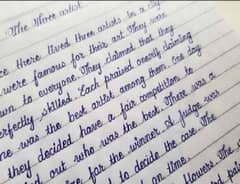 The three artist
ce there lived three artists in a city
were famous for their art. They were
own to everyone. They claimed that they
erfectly skilled. Each praised overly claiming
ne was the best artist among them. One day
they decided have a fair competition to
out who was the best. There was a
for the winner. A judge was
to decide the case. The
on time.
flowers. The